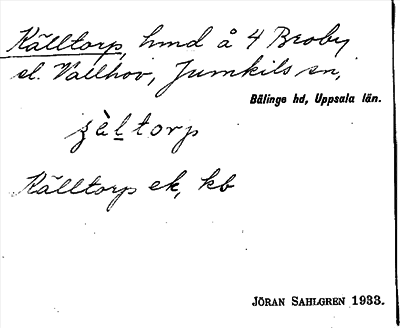 Källtorp, hmd å 4 Broby
el. Vallhov, Jumkils sn,
Bälinge hd, Uppsala län.
ʒὲl̠torp
Källtorp ek, kb
JÖRAN SAHLGREN 1933.